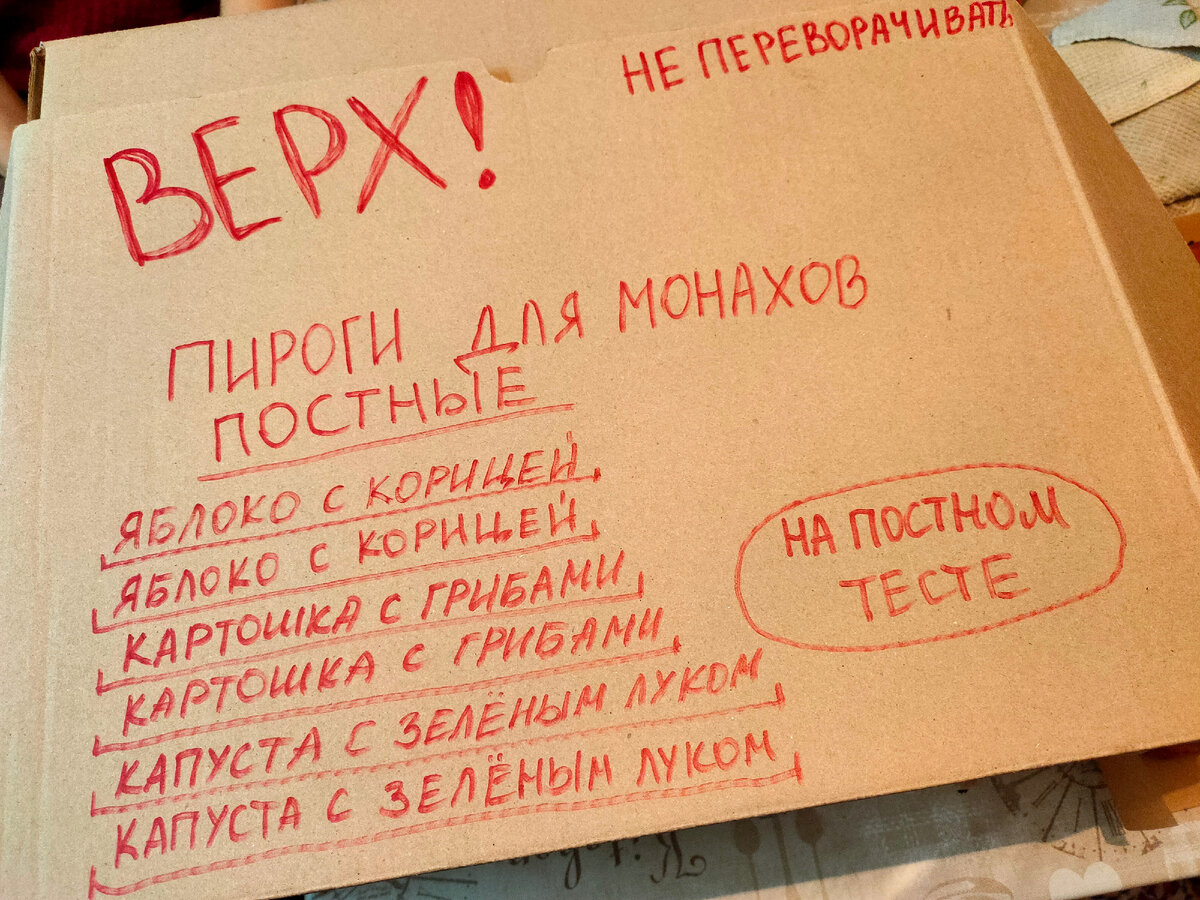 НЕ ПЕРЕВОРАЧИВАТЬ
ВЕРХ!
ПИРОГИ ДЛЯ МОНАХОВ
ПОСТНЫЕ
ЯБЛОКО С КОРИЦЕЙ
ЯБЛОКО С КОРИЦЕЙ
КАРТОШКА С ГРИБАМИ
КАРТОШКА С ГРИБАМИ
КАПУСТА С ЗЕЛЁНЫМ ЛУКОМ
КАПУСТА С ЗЕЛЁНЫМ ЛУКОМ
НА ПОСТНОМ
ТЕСТЕ